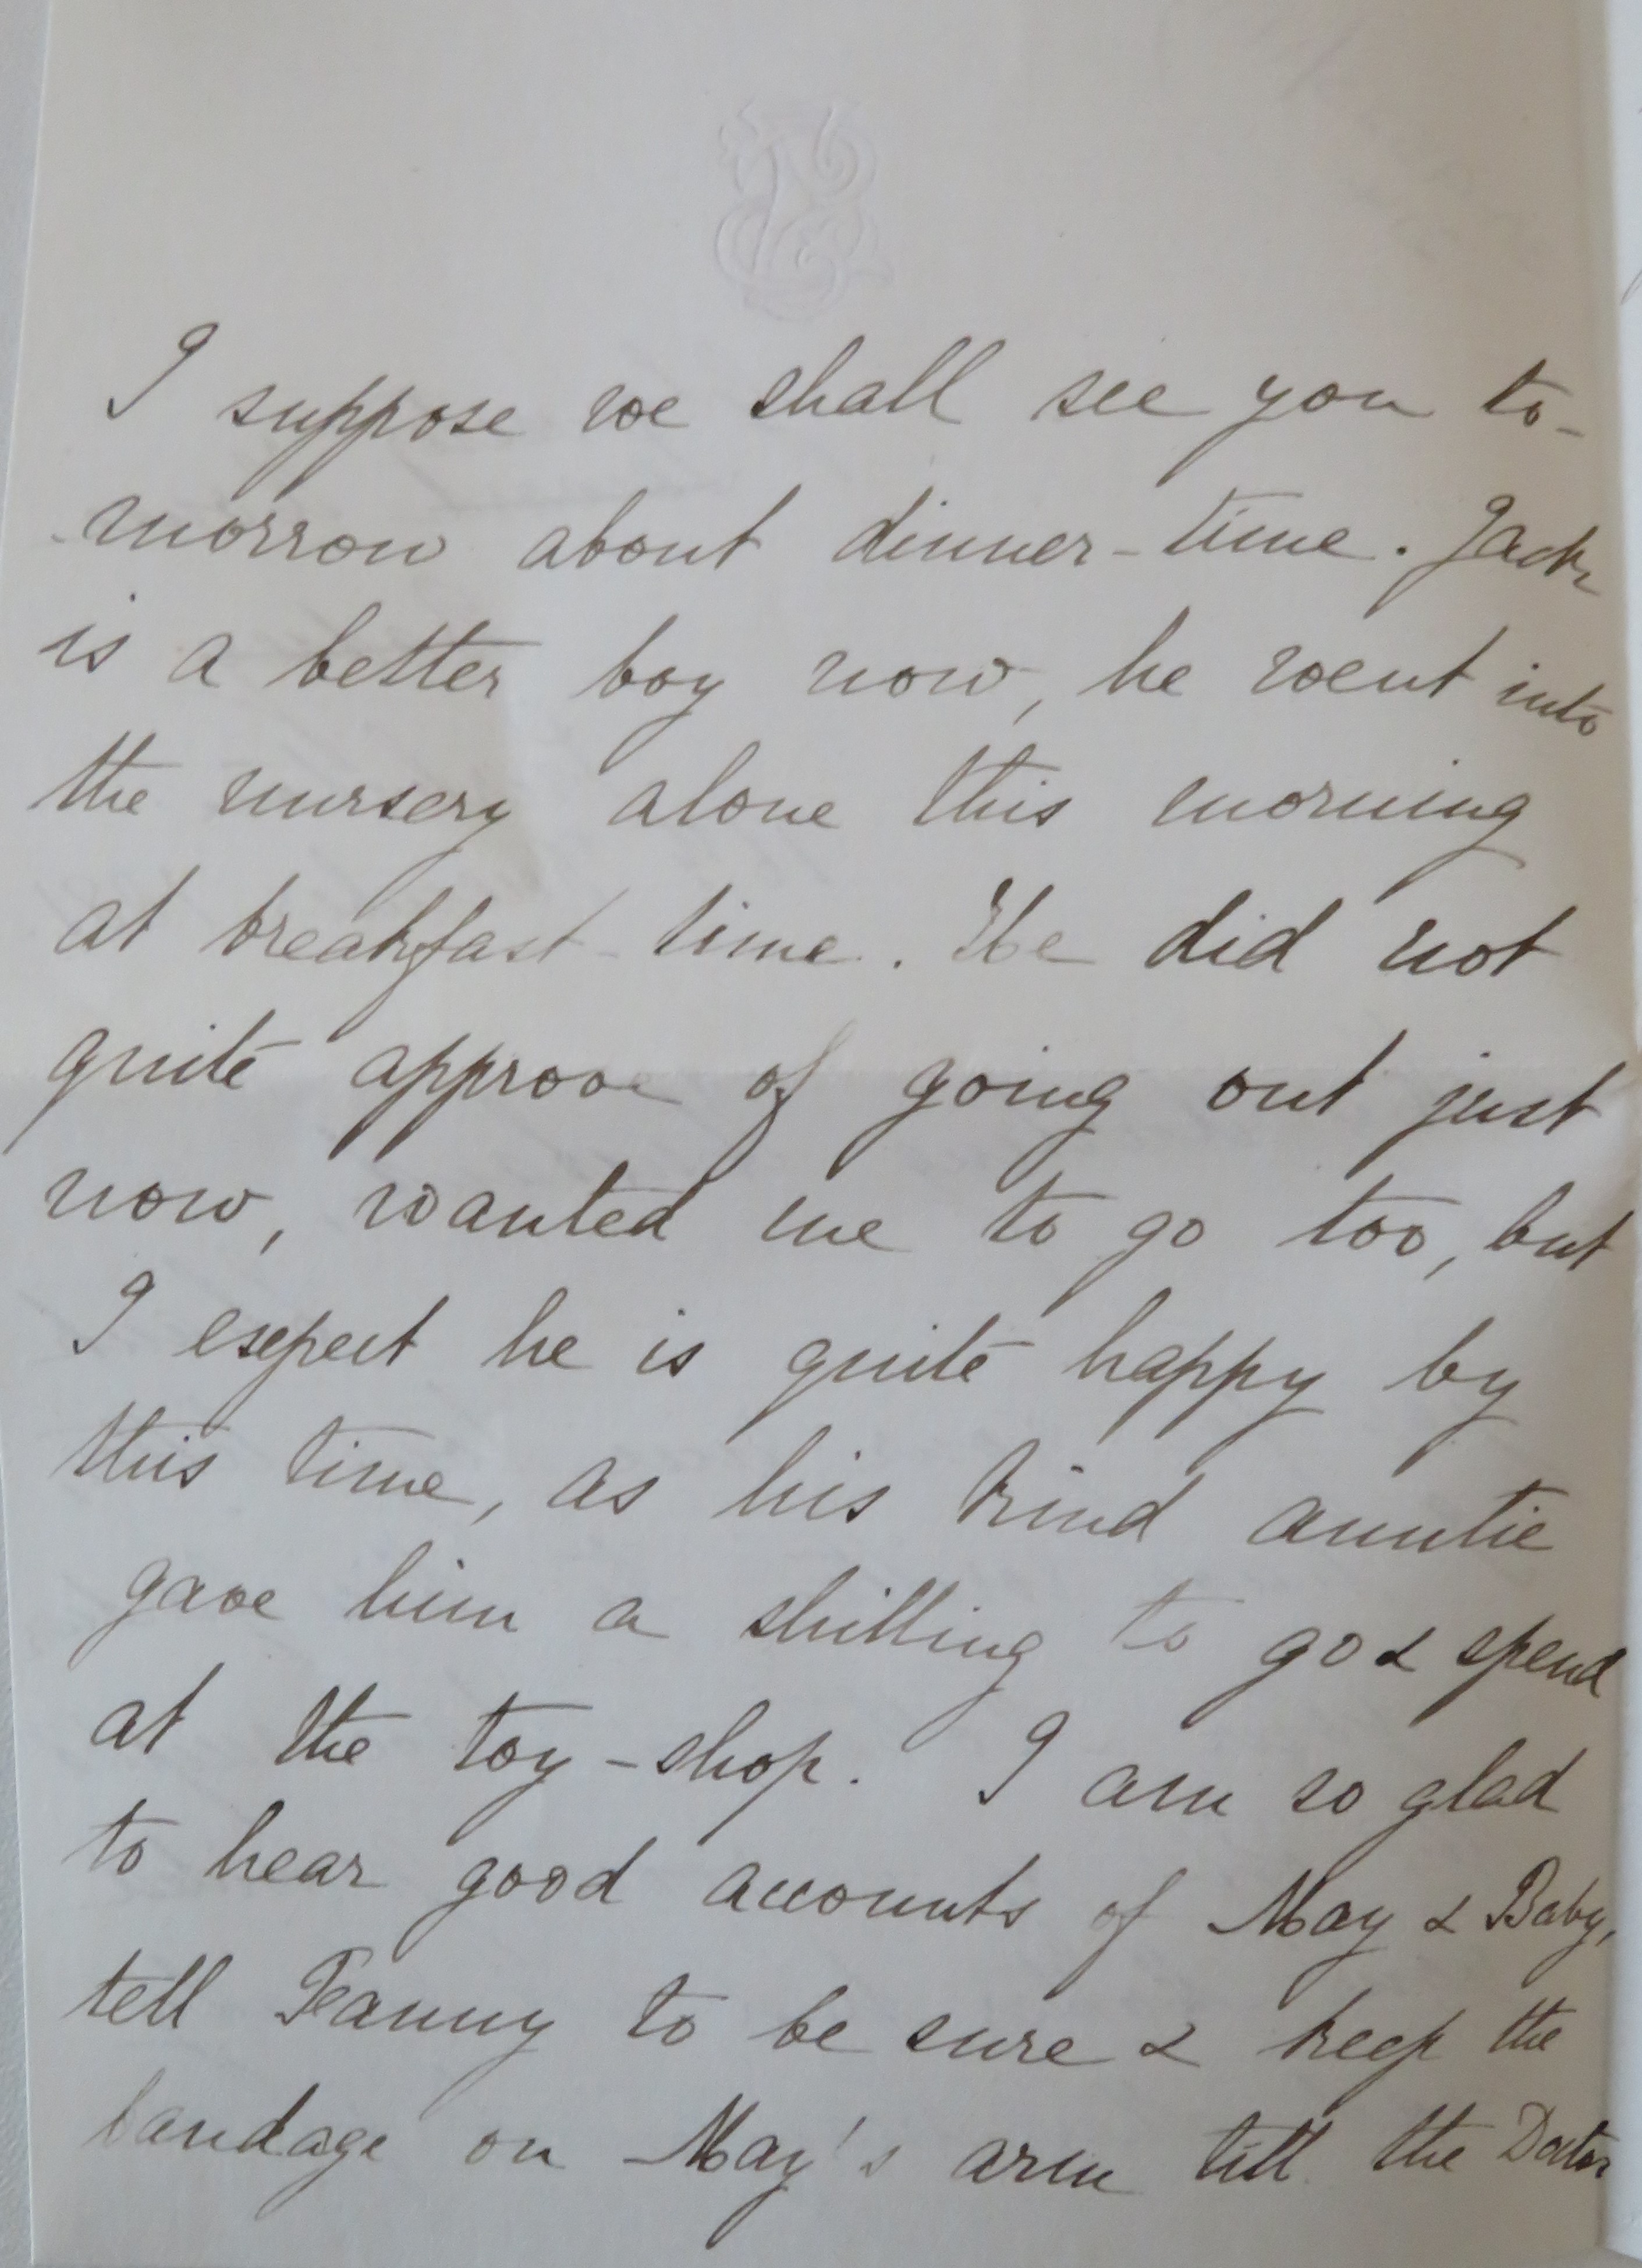 I suppose we shall see you to-
-morrow about dinner-time. Jack
is a better boy now, he went into
the nursery alone this morning
at breakfast-time. He did not
quite approve of going out just
now, wanted me to go too, but
I expect he is quite happy by
this time, as his kind auntie
gave him a shilling to go & spend
at the toy-shop. I am so glad
to hear good accounts of May & Baby,
tell Fanny to be sure & keep the
bandage on May's arm till the Doctor